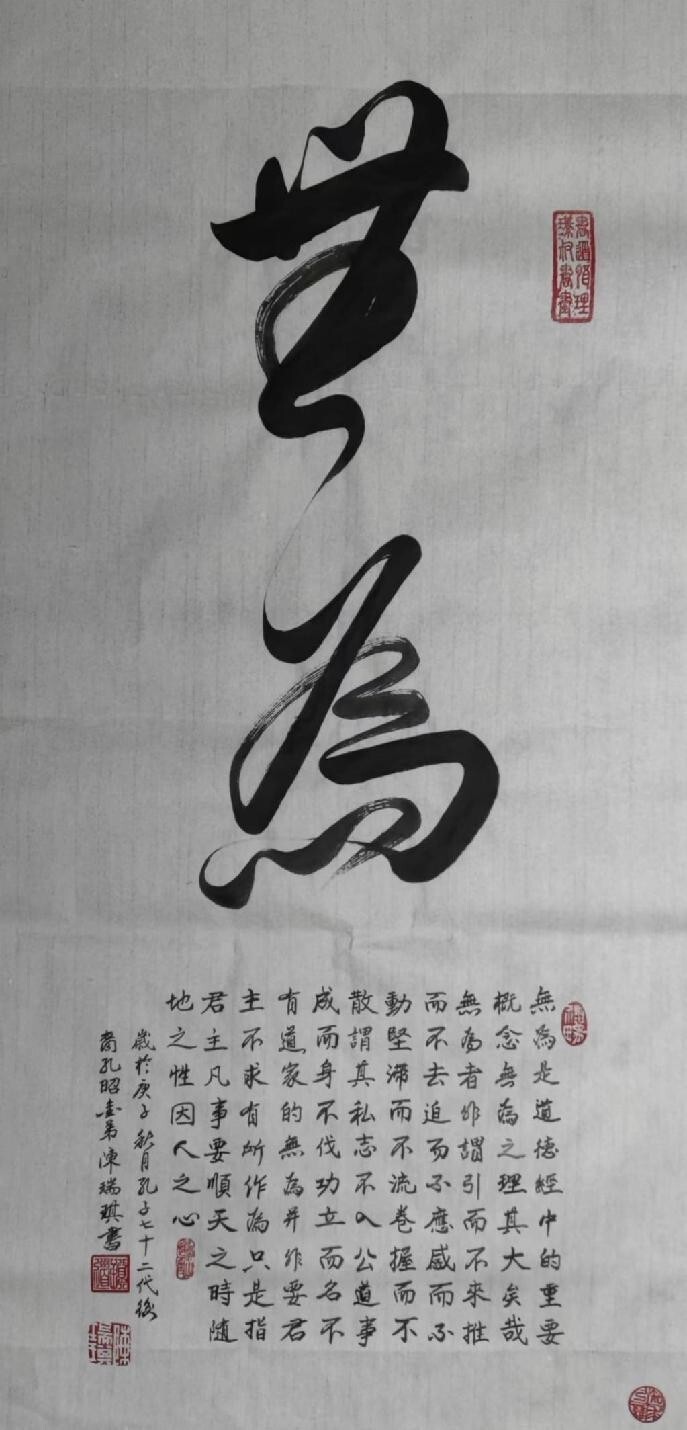 無為
無為是道德經中的重要
概念無為之理其大矣哉
無為者非謂引而不來推
而不去迫而不應感而不
動堅滯而不流卷握而不
散謂其私志不入公道事
成而身不伐功立而名不
有道家的無為并非要君
主不求有所作為只是指
君主凡事要順天之時隨
地之性因人之心
歲於庚子秋月孔子七十二代後
裔孔昭 弟陳瑞琪書